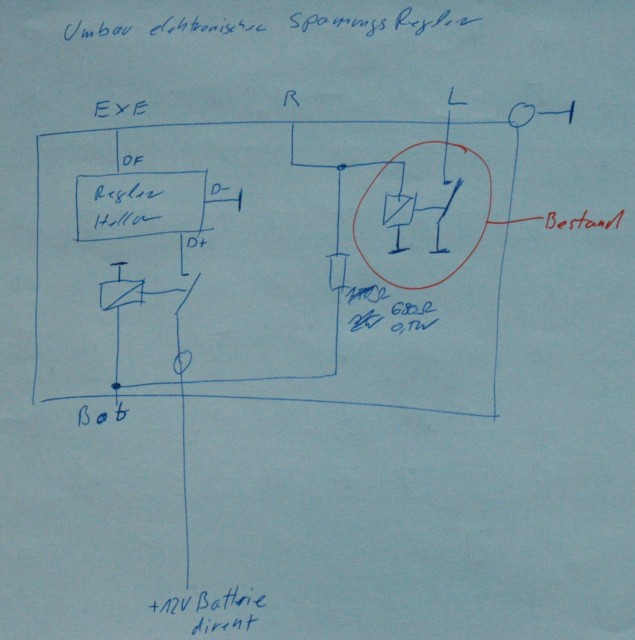 Umbau elektronischer Spannungs Regler
EXE
R
L
DF
Regler
Hella
D-
D+
Bestand
680Ω
Bat
+12V Batterie
direkt